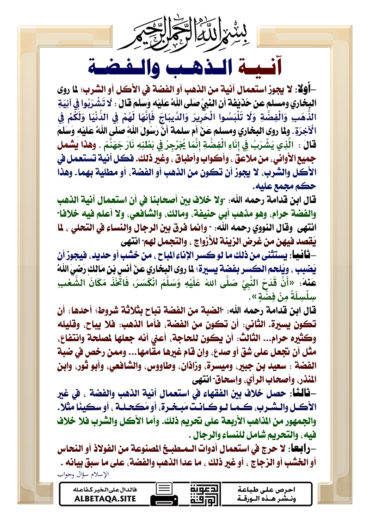 بسم الله الرحمن الرحيم
آنية الذهب والفضة
–أولاً: لا يجوز استعمال آنية من الذهب أو الفضة في الأكل أو الشرب؛ لما روى
البخاري ومسلم عن حذيفة أن النبيّ صلى اللهُ عليه وسلم قال : لَا تَشْرَبُوا فِي آنِيَةِ
الذَّهَبِ وَالْفِضَّةِ وَلَا تَلْبَسُوا الْحَرِيرَ وَالدِّيبَاجَ فَإِنَّهَا لَهُمْ فِي الدُّنْيَا وَلَكُمْ فِي
الْآخِرَةِ. ولما روى البخاري ومسلم عَنْ أم سلمة أَنَّ رَسُولَ اللَّهِ صَلَّى اللَّهُ عَلَيْهِ وَسَلَّمَ
قَالَ : الَّذِي يَشْرَبُ فِي إِنَاءِ الْفِضَّةِ إِنَّمَا يُجَرْجِرُ فِي بَطْنِهِ نَارَ جَهَنَّمَ . وهذا يشمل
جميع الأواني، من ملاعق ، وأكواب وأطباق ، وغير ذلك. فكل آنية تستعمل في
الأكل والشرب، لا يجوز أن تكون من الذهب أو الفضة، أو مطلية بهما. وهذا
حكم مجمع عليه.
قال ابن قدامة رحمه الله: "ولا خلاف بين أصحابنا في أن استعمال آنية الذهب
والفضة حرام، وهو مذهب أبي حنيفة، ومالك، والشافعي، ولا أعلم فيه خلافا"
انتهى وقال النووي رحمه الله: " وإنما فرق بين الرجال والنساء في التحلي ، لما
يقصد فيهن من غرض الزينة للأزواج ، والتجمل لهم" انتهى
–ثانياً: يستثنى من ذلك ما لو كسر الإناء المباح ، من خشب أو حديد، فيجوز أن
يضبب ، ويلحم الكسر بفضة يسيرة؛ لما روى البخاري عَنْ أَنَسِ بْنِ مَالِكٍ رَضِيَ اللَّهُ
عَنْهُ: «أَنَّ قَدَحَ النَّبِيِّ صَلَّى اللهُ عَلَيْهِ وَسَلَّمَ انْكَسَرَ، فَاتَّخَذَ مَكَانَ الشَّعْبِ
سِلْسِلَةً مِنْ فِضَّةٍ».
قال ابن قدامة رحمه الله: "الضبة من الفضة تباح بثلاثة شروط؛ أحدها: أن
تكون يسيرة. الثاني: أن تكون من الفضة، فأما الذهب: فلا يباح، وقليله
وكثيره حرام... الثالث: أن يكون للحاجة، أعني أنه جعلها لمصلحة وانتفاع،
مثل أن تجعل على شق أو صدع، وإن قام غيرها مقامها... وممن رخص في ضبة
الفضة : سعيد بن جبير، وميسرة، وزاذان، وطاوس، والشافعي، وأبو ثور، وابن
المنذر، وأصحاب الرأي، وإسحاق" انتهى
–ثالثاً: حصل خلاف بين الفقهاء في استعمال آنية الذهب والفضة ، في غير
الأكل والشرب، كما لو كانت مبخرة، أو مكحلة ، أو سكينا مثلا.
والجمهور من المذاهب الأربعة على تحريم ذلك. وأما الأكل والشرب فلا خلاف
فيه، والتحريم شامل للنساء والرجال .
–رابعاً: لا حرج في استعمال أدوات المطبخ المصنوعة من الفولاذ أو النحاس
أو الخشب أو الزجاج ، أو غير ذلك ، ما عدا الذهب والفضة، على ما سبق بيانه .
الإسلام سؤال وجواب
احرص على طباعة
ونشر هذه الورقة
الدعوية
الورقة
فالدال على الخير كفاعله
ALBETAQA.SITE